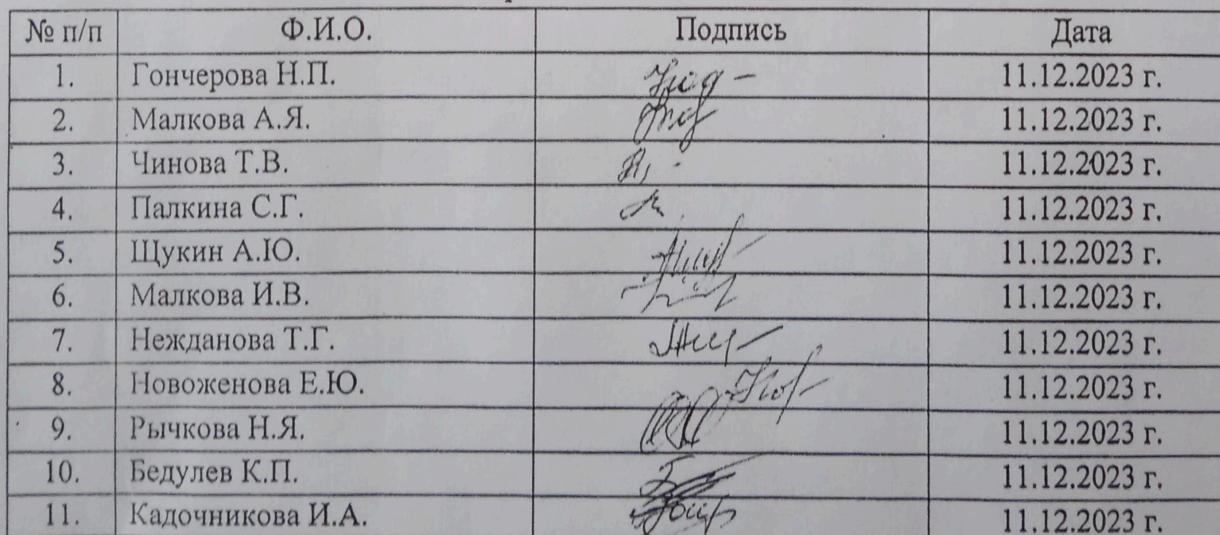 № п/п Ф.И.О. Подпись Дата
1. Гончерова Н.П. 11.12.2023 г.
2. Малкова А.Я. 11.12.2023 г.
3. Чинова Т.В. 11.12.2023 г.
4. Палкина С.Г. 11.12.2023 г.
5. Щукин А.Ю. 11.12.2023 г.
6. Малкова И.В. 11.12.2023 г.
7. Нежданова Т.Г. 11.12.2023 г.
8. Новоженова Е.Ю. 11.12.2023 г.
9. Рычкова Н.Я. 11.12.2023 г.
10. Бедулев К.П. 11.12.2023 г.
11. Кадочникова И.А. 11.12.2023 г.